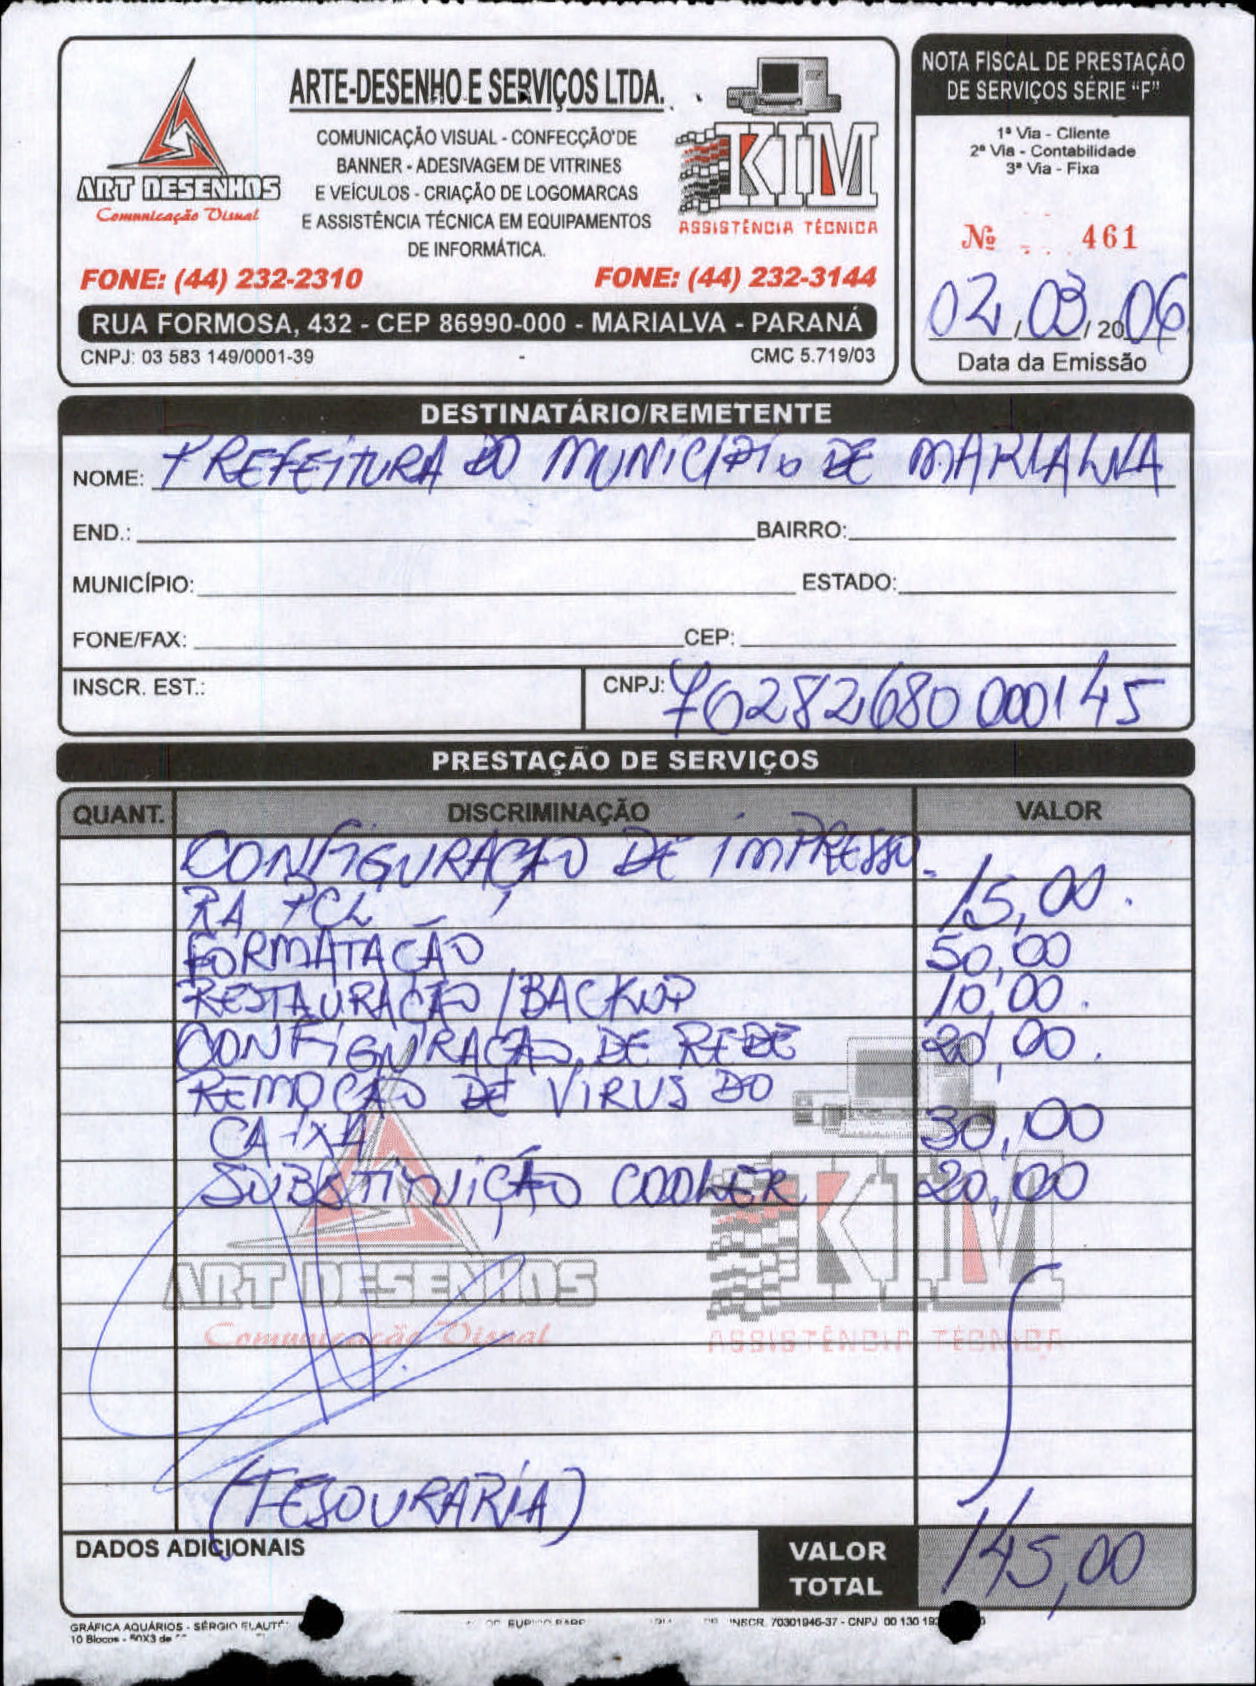 ARTE-DESENHO E SERVIÇOS LTDA.
COMUNICAÇÃO VISUAL - CONFECÇÃO DE
BANNER - ADESIVAGEM DE VITRINES
E VEÍCULOS - CRIAÇÃO DE LOGOMARCAS
E ASSISTÊNCIA TÉCNICA EM EQUIPAMENTOS
DE INFORMÁTICA.
ART DESENHOS
Comunicação Visual
KIM
ASSISTÊNCIA TÉCNICA
FONE: (44) 232-2310 FONE: (44) 232-3144
RUA FORMOSA, 432 - CEP 86990-000 - MARIALVA - PARANÁ
CNPJ: 03 583 149/0001-39 CMC 5.719/03
NOTA FISCAL DE PRESTAÇÃO
DE SERVIÇOS SÉRIE "F"
1ª Via - Cliente
2ª Via - Contabilidade
3ª Via - Fixa
Nº 461
02/03/2006
Data da Emissão
DESTINATÁRIO/REMETENTE
NOME: PREFEITURA DO MUNICIPIO DE MARIALVA
END.: BAIRRO:
MUNICÍPIO: ESTADO:
FONE/FAX: CEP:
INSCR. EST.: CNPJ: 76282680 000145
PRESTAÇÃO DE SERVIÇOS
QUANT. DISCRIMINAÇÃO VALOR
CONFIGURAÇÃO DE IMPRESSO
RA PCL 15,00.
FORMATAÇÃO 50,00
RESTAURAÇÃO / BACKUP 10,00.
CONFIGURAÇÃO DE REDE 20,00.
REMOÇÃO DE VIRUS DO
CAIXA 30,00
SUBSTITUIÇÃO COOLER 20,00
ART DESENHOS
Comunicação Visual
KIM
ASSISTÊNCIA TÉCNICA
(TESOURARIA)
DADOS ADICIONAIS
VALOR
TOTAL 145,00
GRÁFICA AQUÁRIOS - SÉRGIO INSCR. 70301946-37 - CNPJ 00 130
10 Blocos - 50X3 de